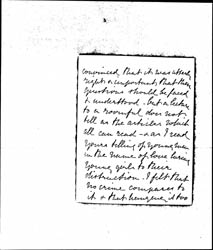 convinced, that it was utterly
right & important, that these
questions should be faced
& understood - but a lecture
to a roomful does not
tell as the articles which
all can read - & as I read
yours telling of young men
in the name of love luring
young girls to their
destruction. I felt that
no crime compares to
it & that hanging is too